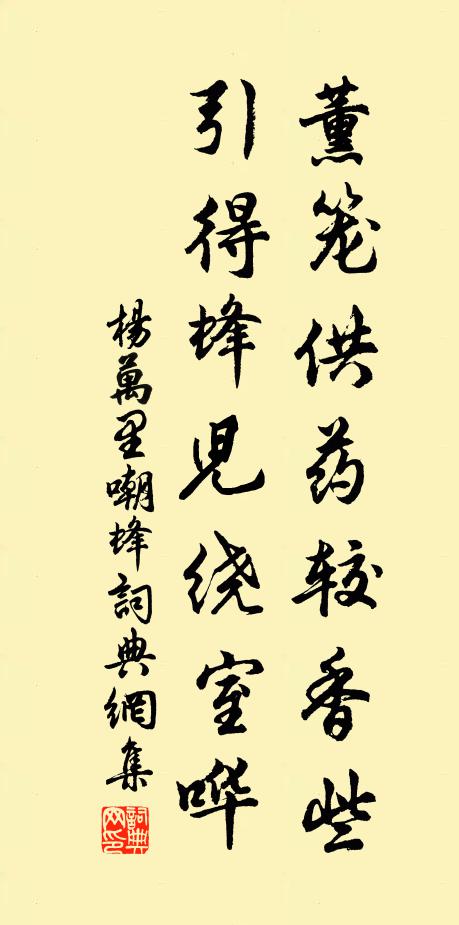 薰笼供药较香些
引得蜂児绕室哗
楊萬里嘲蜂詞典網集
詞典网印